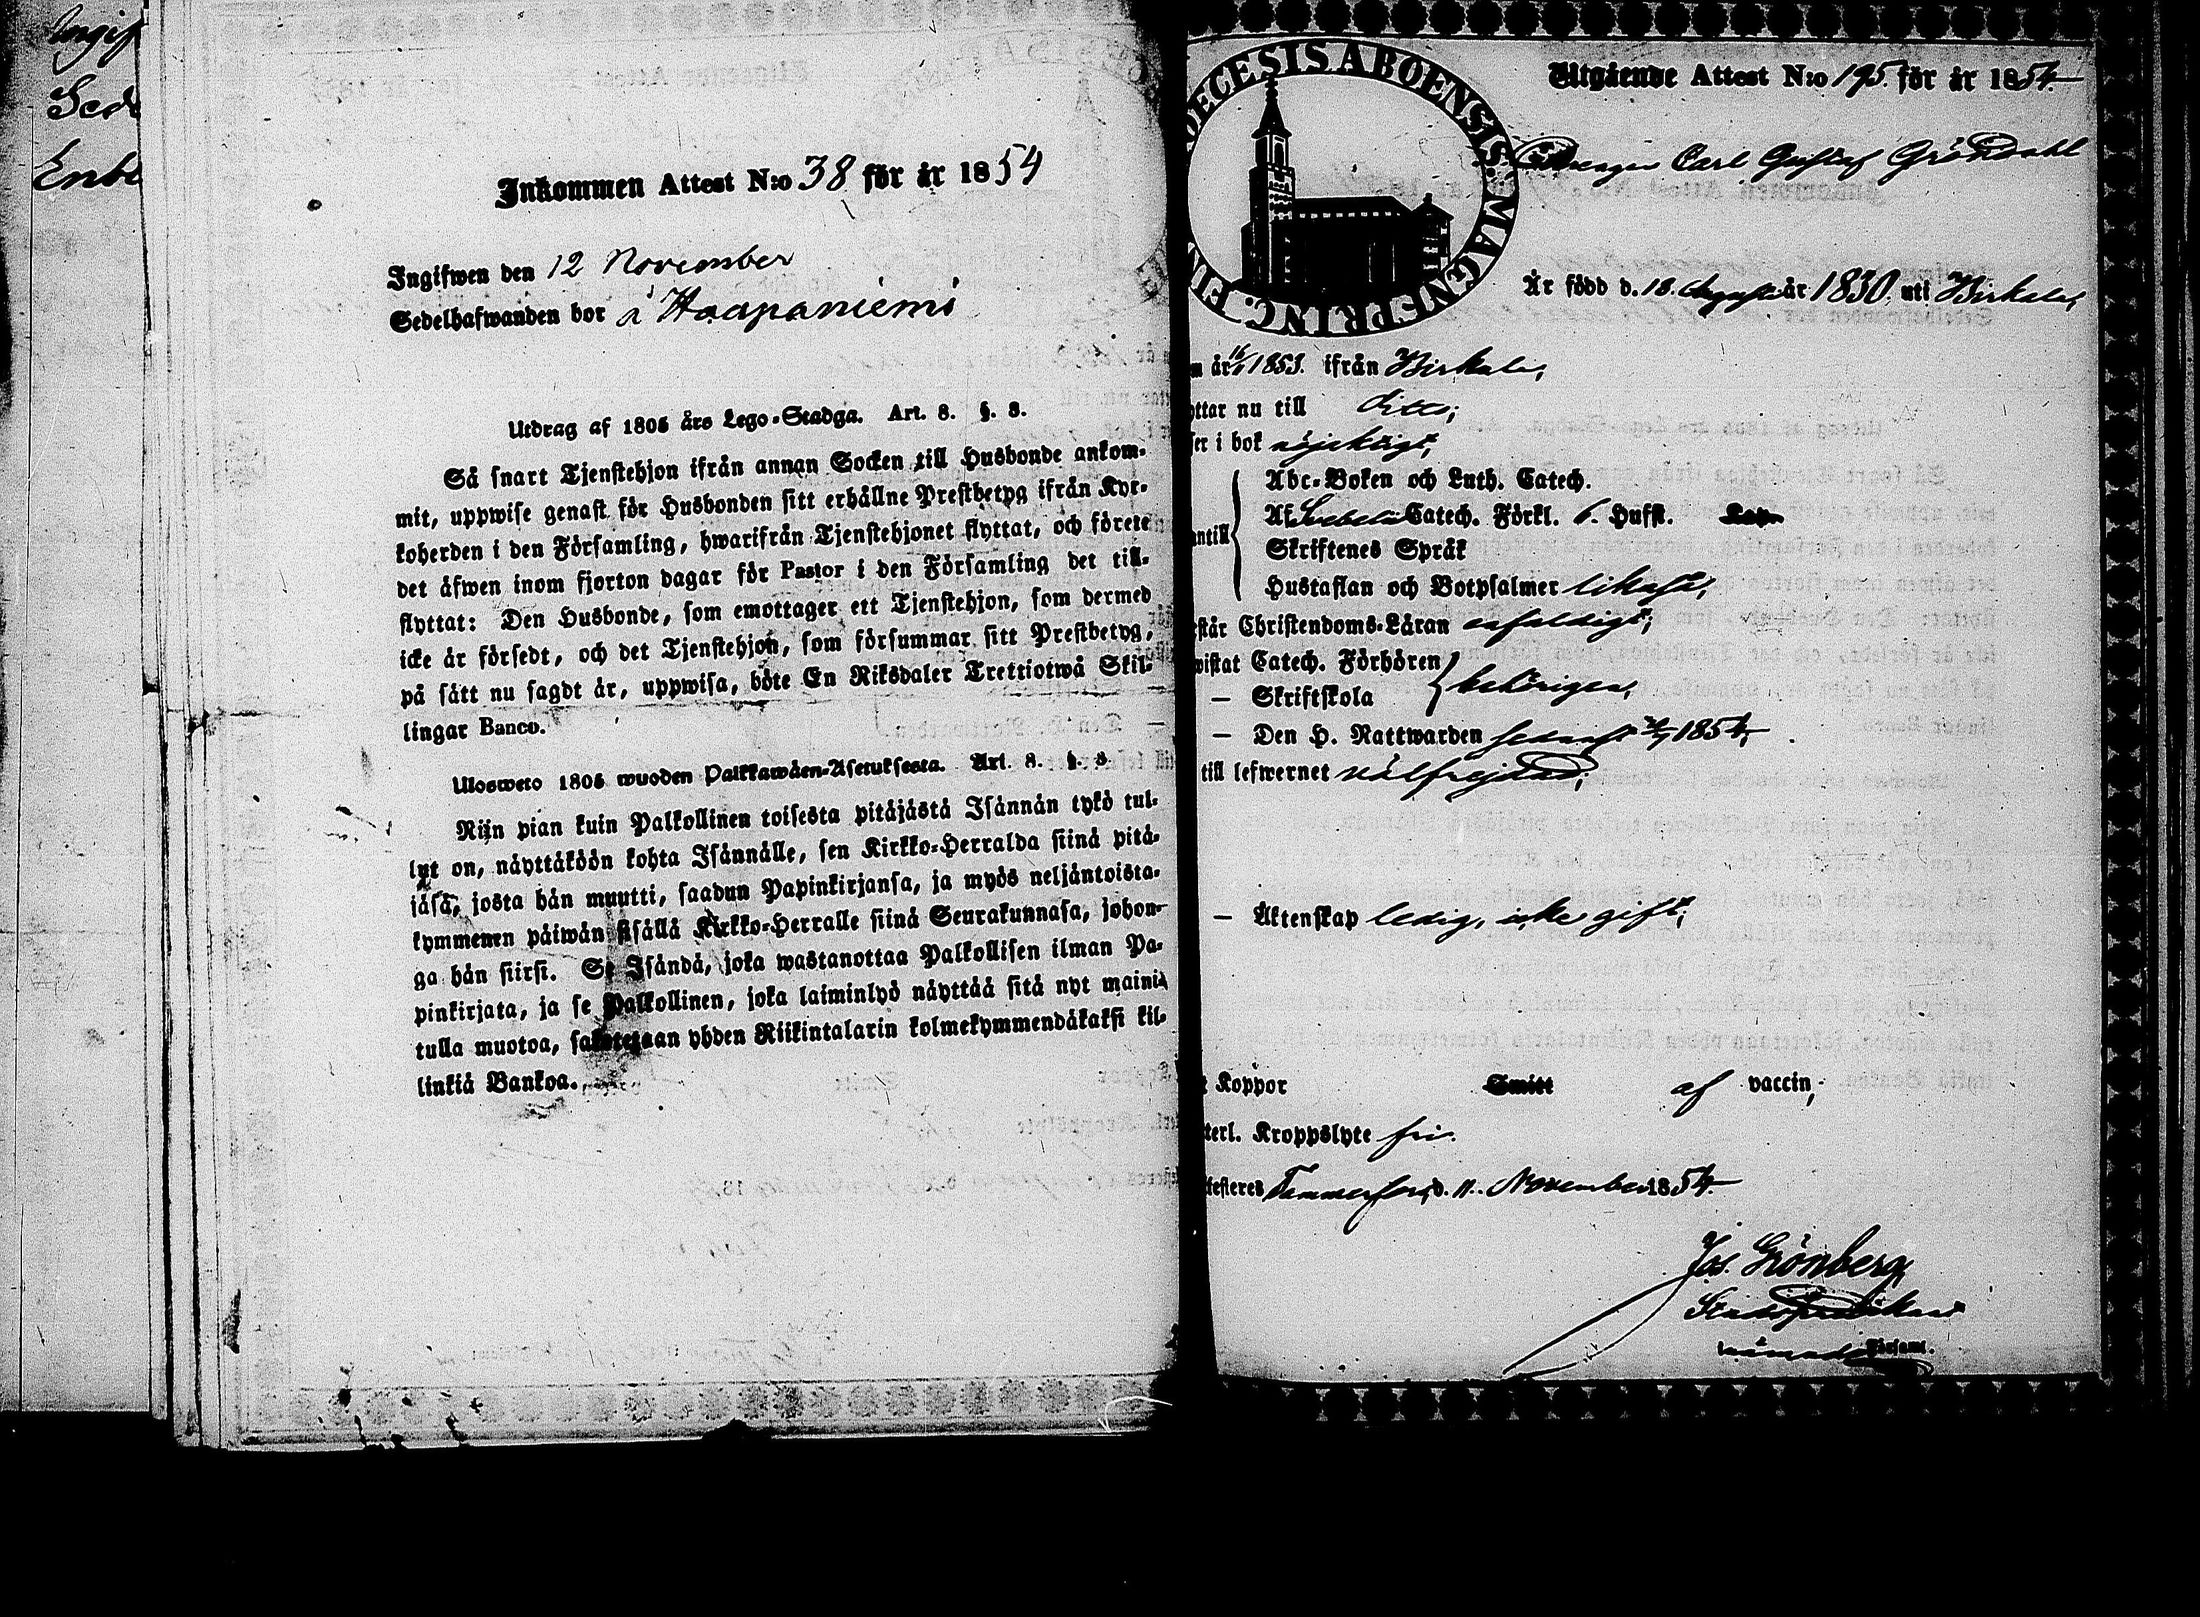 Ingif
Sede
Enbe
Inkommen Attest N:o 38 för år 1854
Ingifwen den 12 November
Sedelhafwanden bor å Haapaniemi
Utdrag af 1805 års Lego-Stadga. Art. 8. §. 8.
Så snart Tjenstehjon ifrån annan Socken till Husbonde ankom-
mit, uppwise genast för Husbonden sitt erhållne Prestbetyg ifrån Kyr-
koherden i den Församling, hwarifrån Tjenstehjonet flyttat, och förete
det åfwen inom fjorton dagar för Pastor i den Församling det till-
flyttat: Den Husbonde, som emottager ett Tjenstehjon, som dermed
icke är försedt, och det Tjenstehjon, som försummar sitt Prestbetyg,
på sätt nu sagdt är, uppwisa, böte En Riksdaler Trettiotwå Skil-
lingar Banco.
Ulosweto 1805 wuoden Palkkawäen-Asetuksesta. Art. 8. §. 8
Niin pian kuin Palkollinen toisesta pitäjästä Isännän tykö tul-
lut on, näyttäköön kohta Isännälle, sen Kirkko-Herralda siinä pitä-
jäsä, josta hän muutti, saadun Papinkirjansa, ja myös neljäntoista-
kymmenen päiwän sisällä Kirkko-Herralle siinä Seurakunnasa, johon-
ga hän siirsi. Se Isändä, joka wastanottaa Palkollisen ilman Pa-
pinkirjata, ja se Palkollinen, joka laiminlyö näyttää sitä nyt maini-
tulla muotoa, sakotetaan yhden Riikintalarin kolmekymmendäkaksi kil-
linkiä Bankoa.
DECESIS ABOENSIS. MAGNE PRINC. FIN
Utgående Attest N:o 195 för år 1854.
Carl Gustaf Gröndahl
Är född d. 18. Augusti år 1830. uti Birkala,
n år 16/1 1853. ifrån Birkala,
yttar nu till ditto;
ser i bok nöjaktigt,
Abc-Boken och Luth. Catech.
Af Svebelii Catech. Förkl. Husst.
antill Skriftenes Språk
Hustaflan och Botpsalmer likaså,
står Christendoms-Läran enfaldigt;
wistat Catech. Förhören
— Skriftskola behörigen,
— Den H. Nattwarden senast 1854,
till lefwernet välfrejdad;
— Äktenskap ledig, icke gift,
t Koppor Smitt af vaccin,
terl. Kroppslyte fri.
testeres Tammerfors, d. 11. November 1854.
Jas. Grönberg
Stadspredikant
Församl.